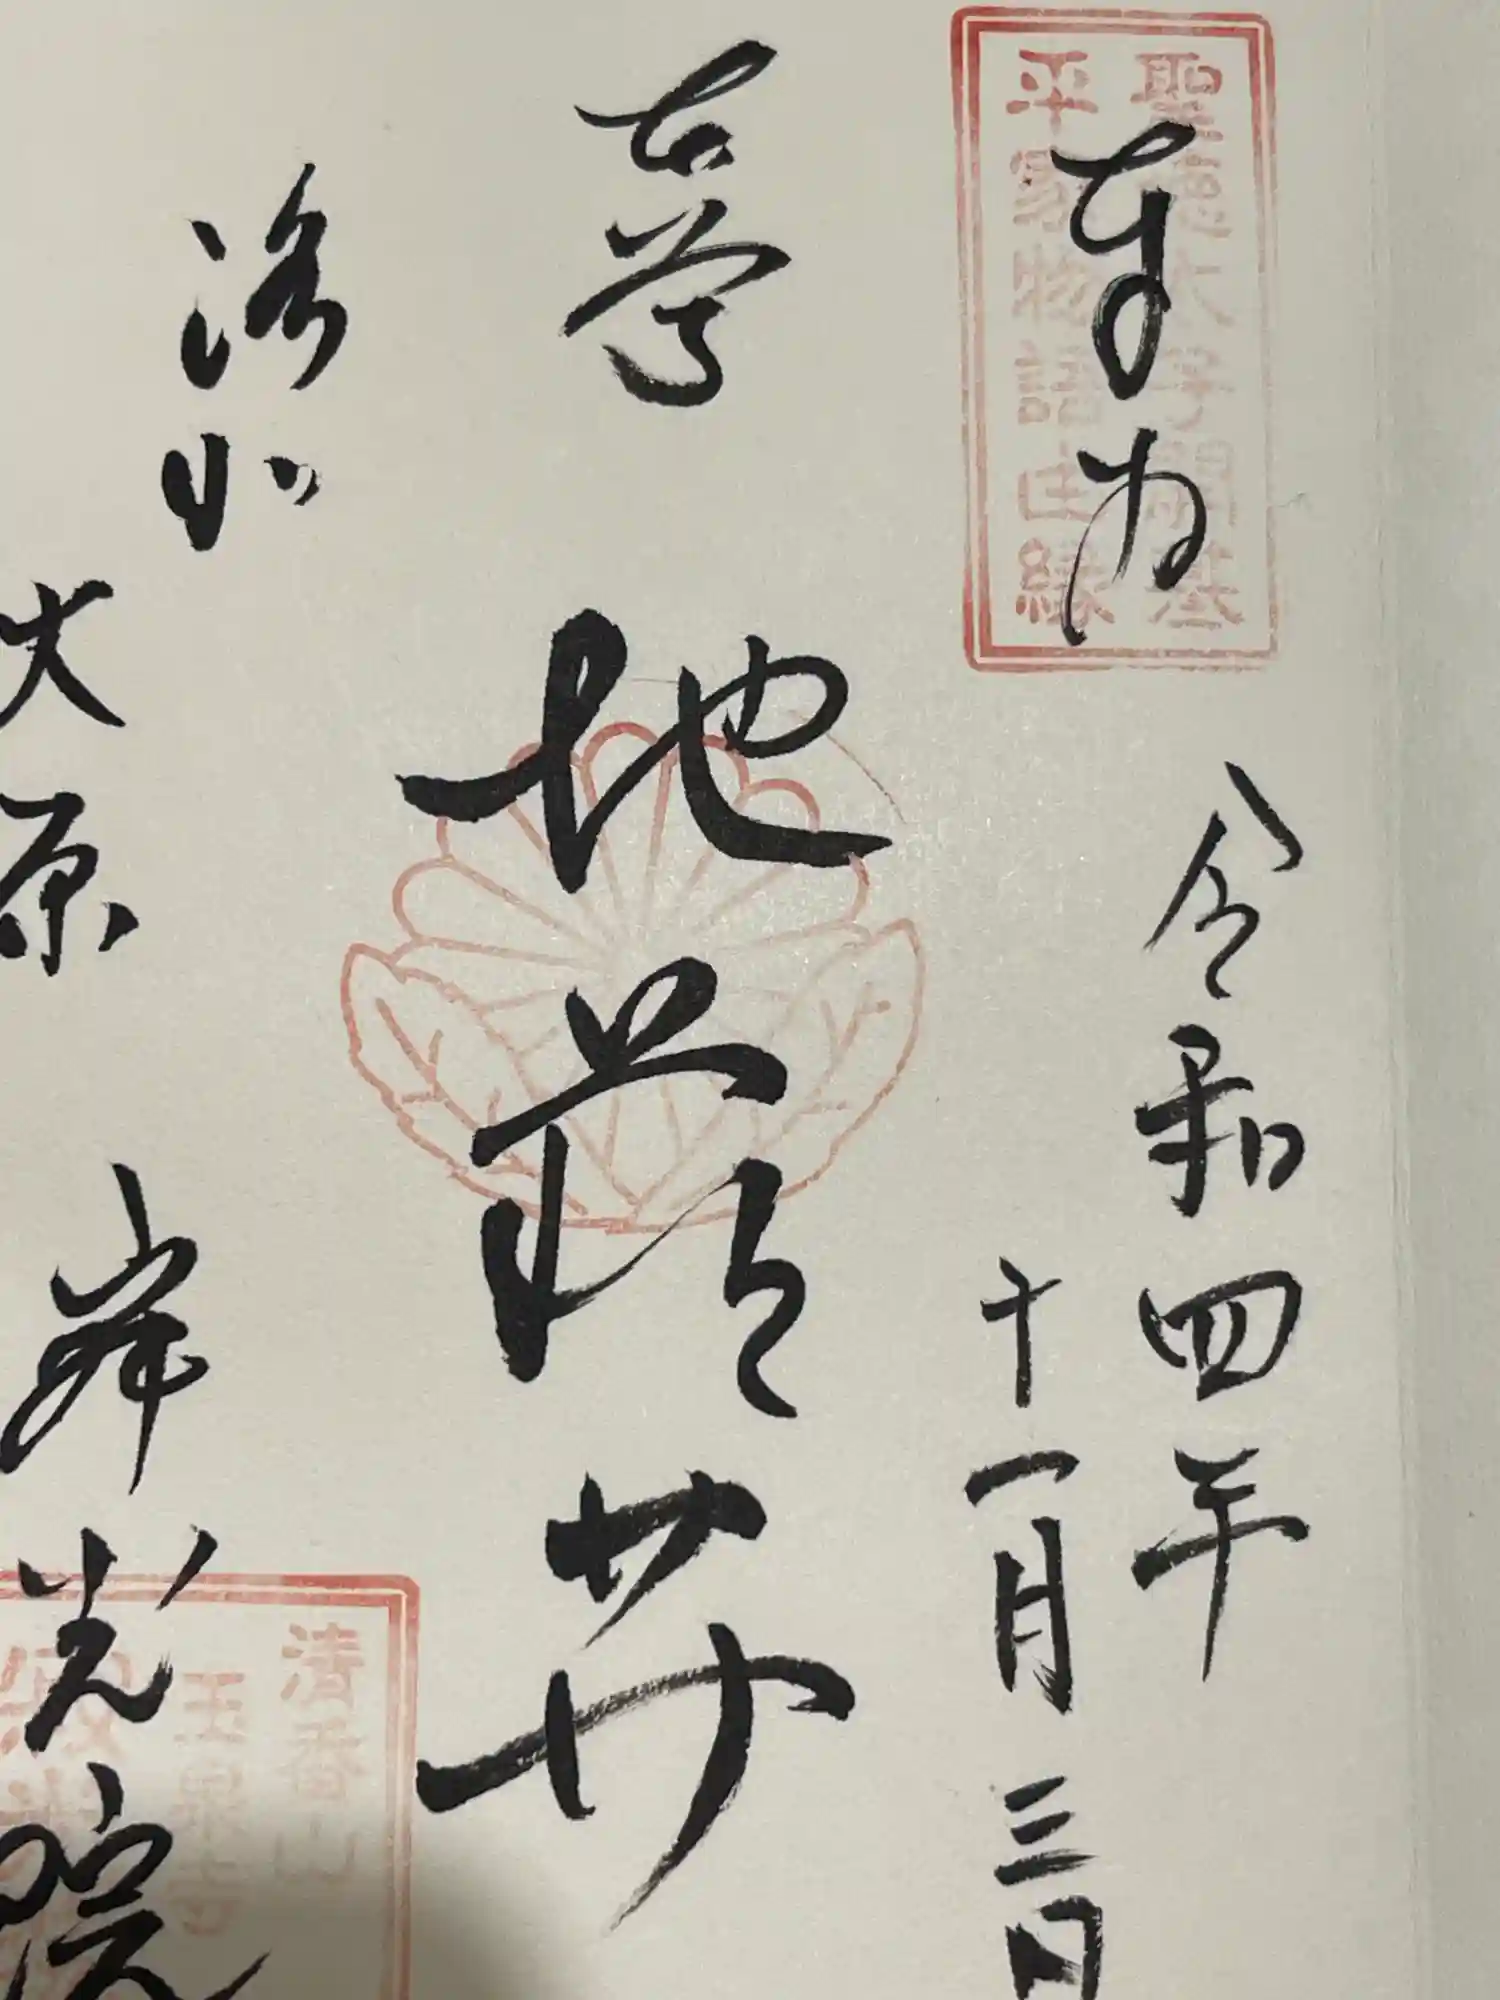 聖徳太子開基
平家物語由縁
奉拝
令和四年
十一月三日
古尊
地蔵𦬇
洛北
大原
寂光院
清香山
玉泉寺